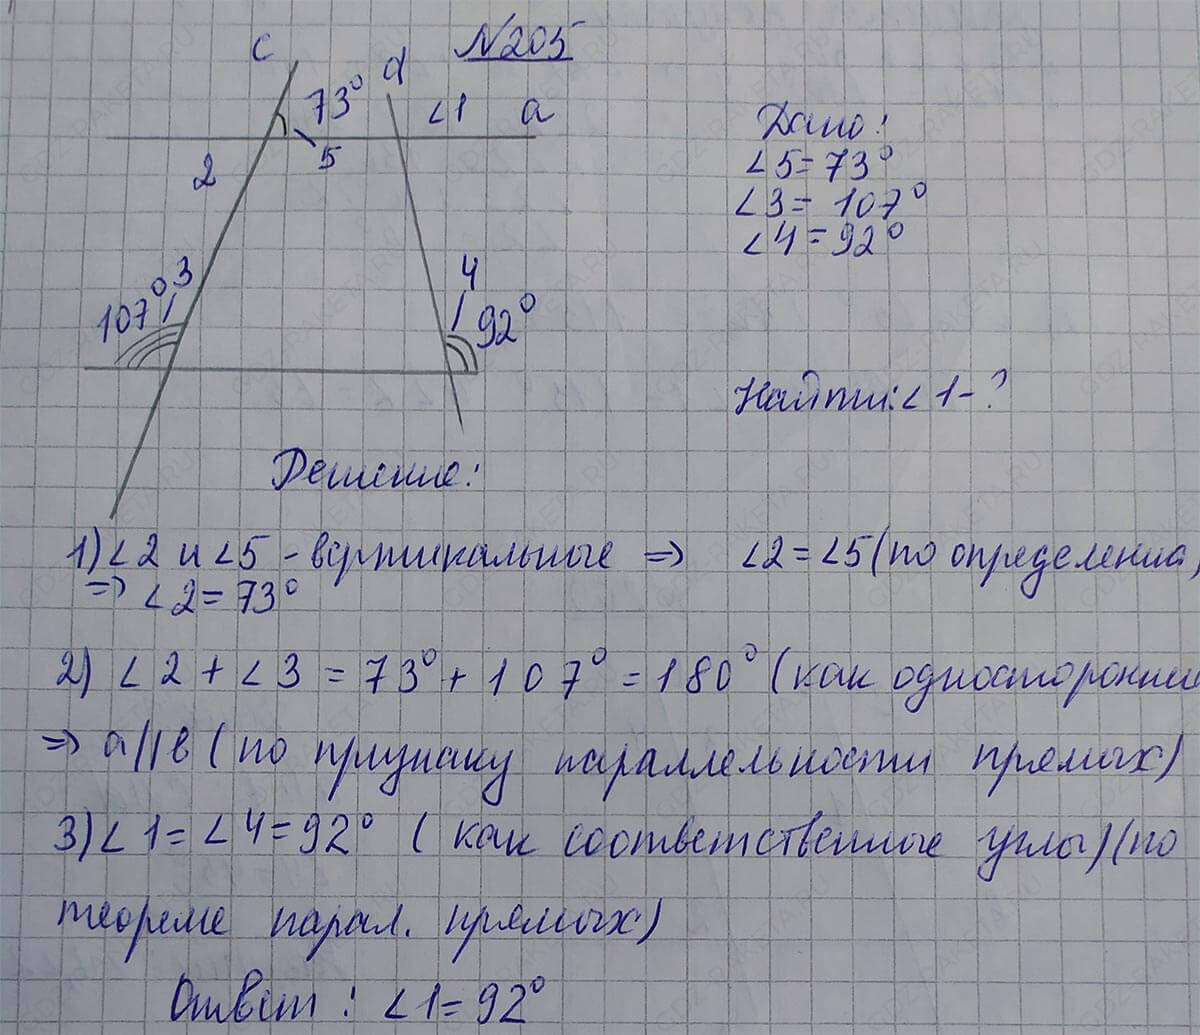 N205
c
d
73°
∠1
a
5
2
3
107°
4
92°
Дано:
∠5=73°
∠3= 107°
∠4=92°
Найти:∠1-?
Решение:
1)∠2 и ∠5 - вертикальные => ∠2=∠5(по определению)
=> ∠2=73°
2) ∠2+∠3=73°+107°=180° (как односторонние
=> a||b (по признаку параллельности прямых)
3)∠1=∠4=92° (как соответственные углы)(по
теореме парал. прямых)
Ответ: ∠1=92°